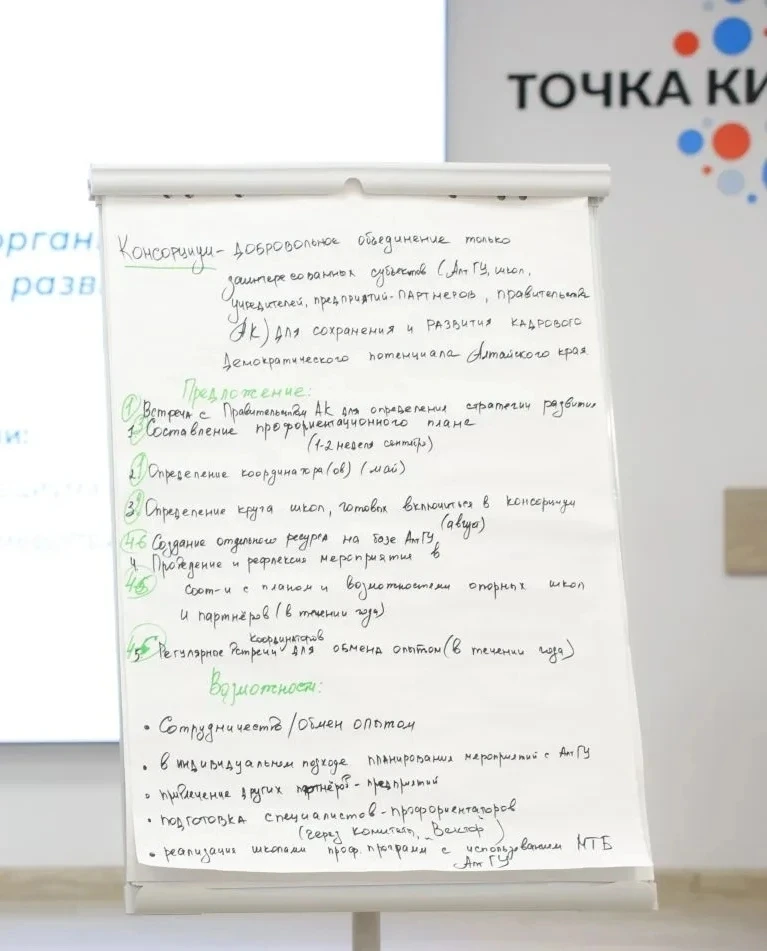 ТОЧКА КИ
орган
разв
и:
Консорциум - добровольное объединение только
заинтересованных субъектов (АлтГУ, школ,
учредителей, предприятий-партнеров, правительства
АК) для сохранения и развития кадрового
демократического потенциала Алтайского края.
Предложение:
1 Встреча с Правительством АК для определения стратегии развития
Составление профориентационного плана
(1-2 неделя сентябр)
Определение координатора(ов) (май)
Определение круга школ, готовых включиться в консорциум
(август)
Создание отдельного ресурса на базе АлтГУ
4. Проведение и рефлексия мероприятия в
соот-и с планом и возможностями опорных школ
и партнёров (в течении года)
координаторов
Регулярное встречи для обмена опытом (в течении года)
Возможности:
• Сотрудничество/обмен опытом
• в индивидуальном подходе планирования мероприятий с АлтГУ
• привлечение других партнёров - предприятий
• подготовка специалистов-профориентаторов
(через комитеты, Вектор)
• реализация школами проф. программ с использованием МТБ
АлтГУ